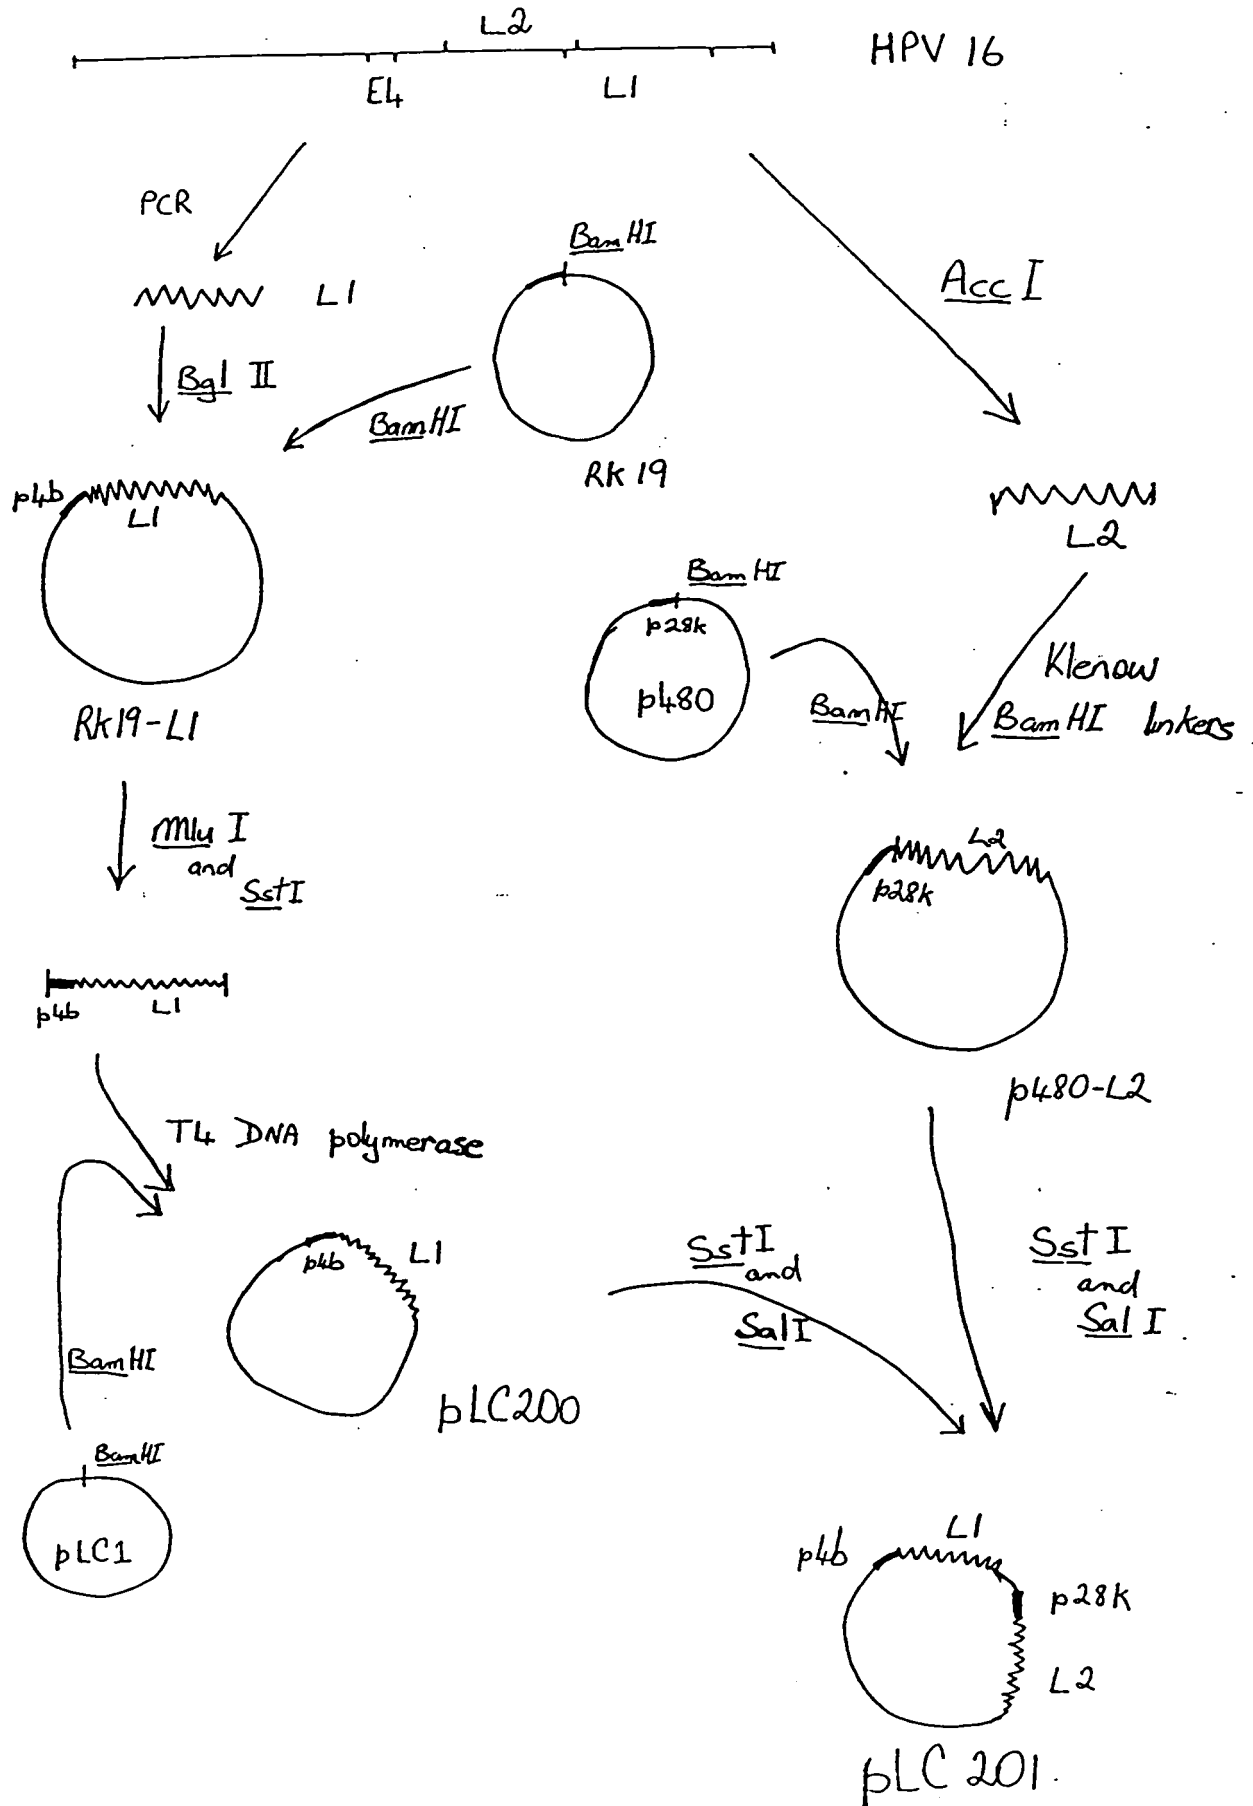 L2
HPV 16
E4
L1
PCR
BamHI
L1
AccI
Bgl II
BamHI
Rk 19
p4b
L1
L2
BamHI
p28k
p480
Klenow
BamHI
BamHI linkers
Rk19-L1
Mlu I
and
SstI
L2
p28k
p4b
L1
p480-L2
T4 DNA polymerase
L1
p4b
SstI
and
SalI
SstI
and
Sal I
BamHI
pLC200
BamHI
pLC1
L1
p4b
p28k
L2
pLC 201.